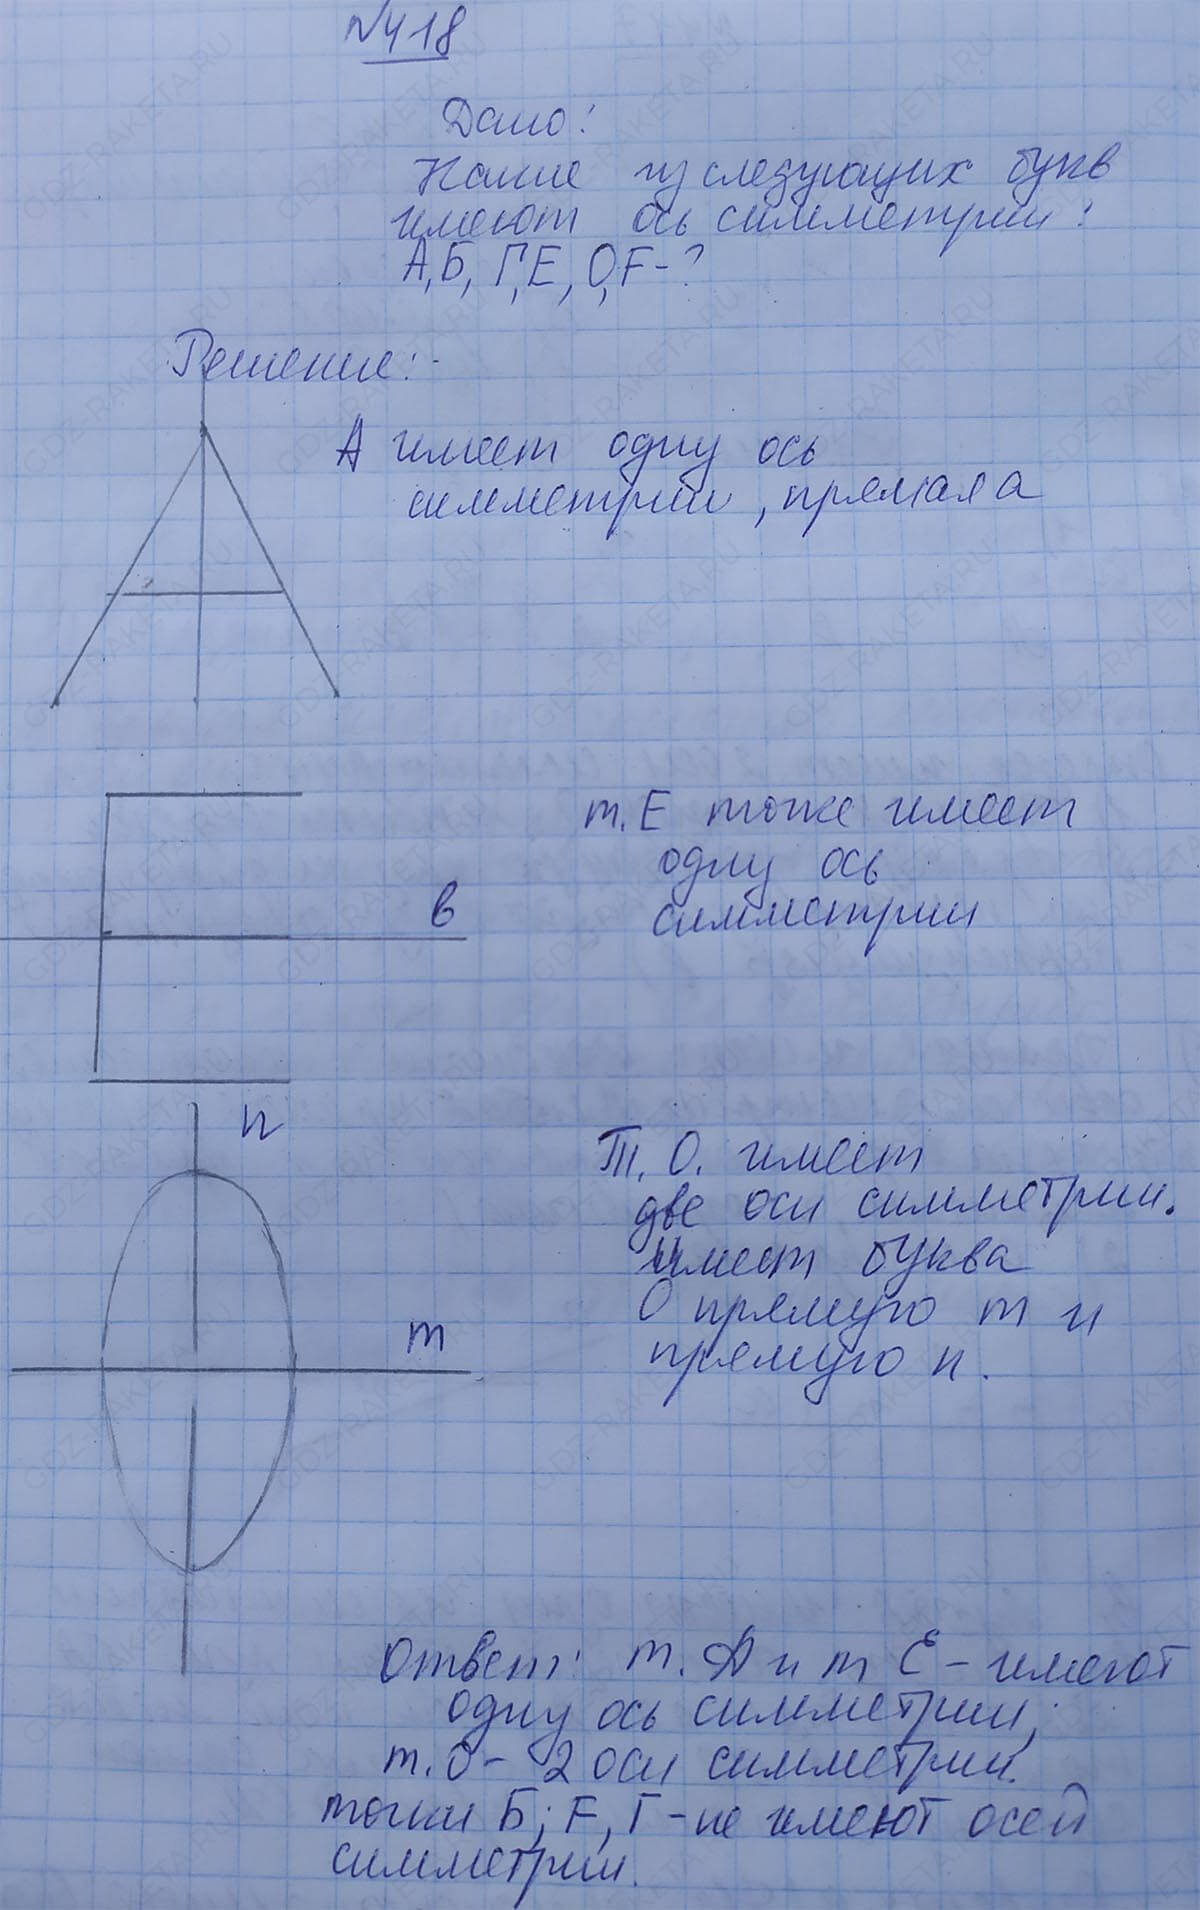 №418
Дано:
Какие из следующих букв
имеют ось симметрии:
А, Б, Г, Е, О, F - ?
Решение:
А имеет одну ось
симметрии, прямая а
т. Е тоже имеет
одну ось
симметрии
в
n
Т. О. имеет
две оси симметрии.
имеет буква
О прямую m и
прямую n.
m
Ответ: т. А и т Е - имеют
одну ось симметрии;
т. О - 2 оси симметрии.
точки Б; F, Г - не имеют осей
симметрии.
GDZ-RAKETA.RU